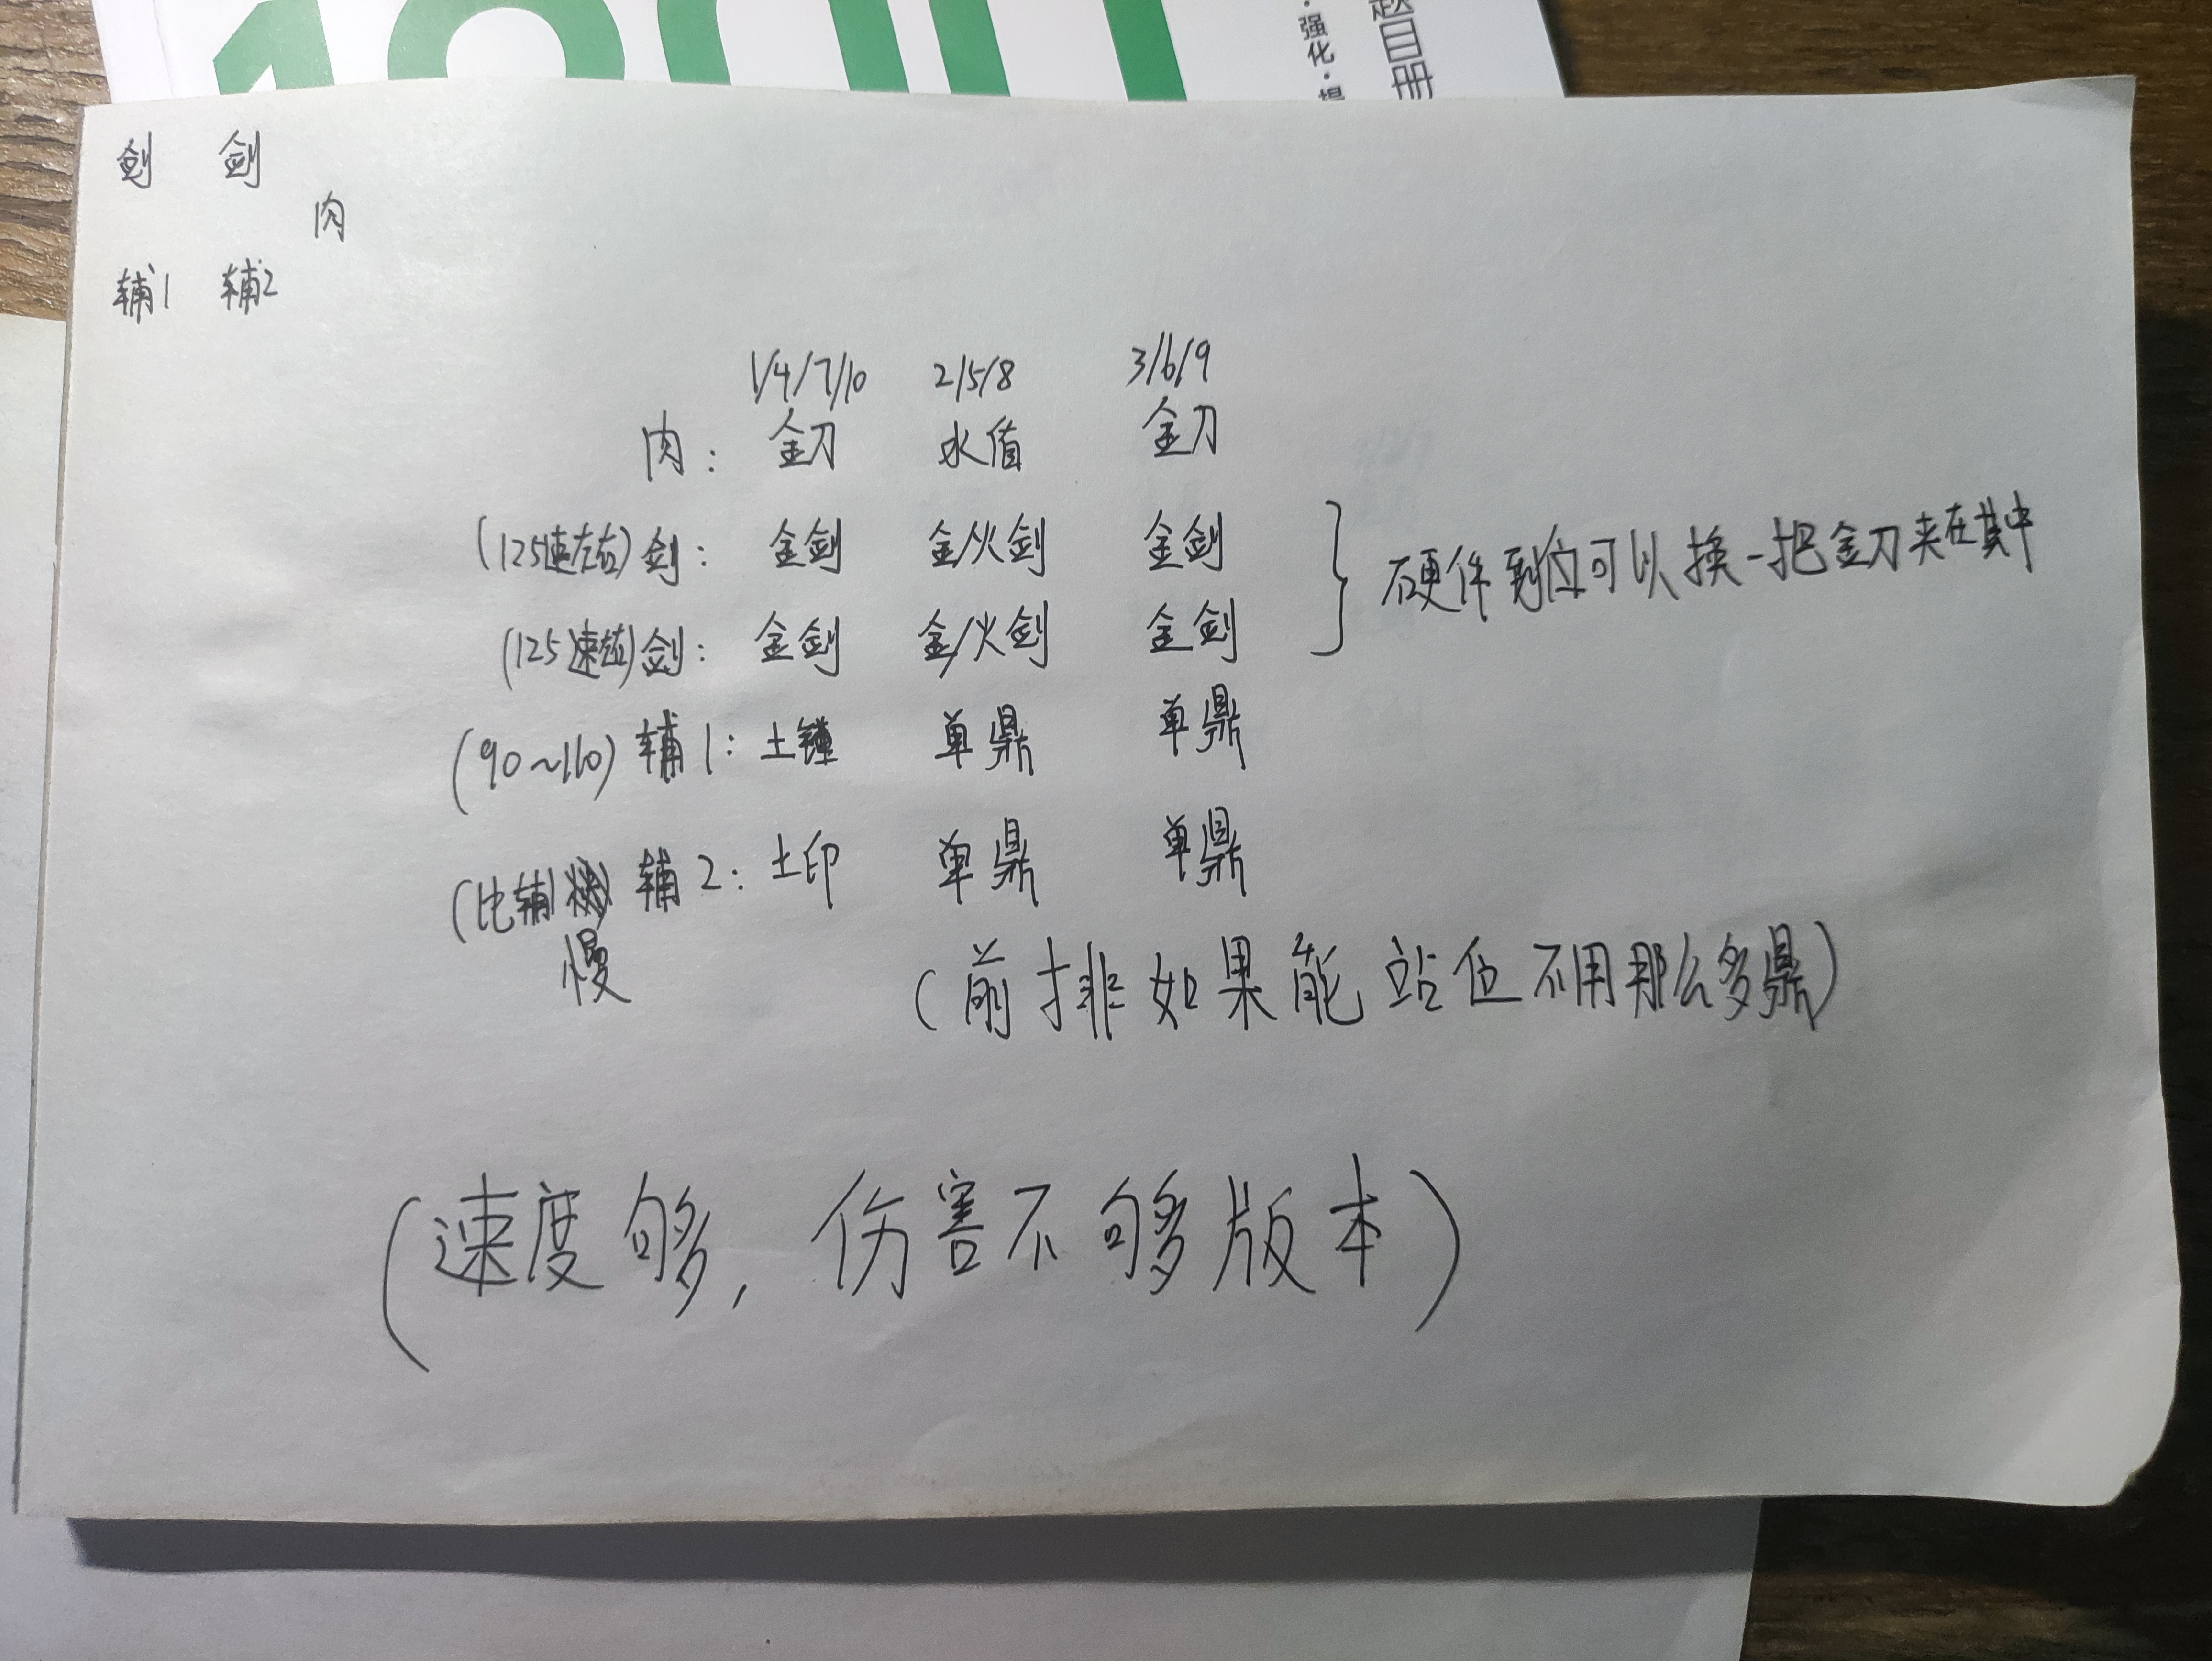 ·强化·提
题目册
剑 剑
肉
辅1 辅2
1/4/7/10 2/5/8 3/6/9
肉: 金刀 水盾 金刀
(125速左右)剑: 金剑 金/火剑 金剑
(125速左右)剑: 金剑 金/火剑 金剑
硬件到位可以换一把金刀夹在其中
(90~110)辅1: 土锺 单鼎 单鼎
(比辅1慢)辅2: 土印 单鼎 单鼎
(前排如果能站住不用那么多鼎)
(速度够,伤害不够版本)